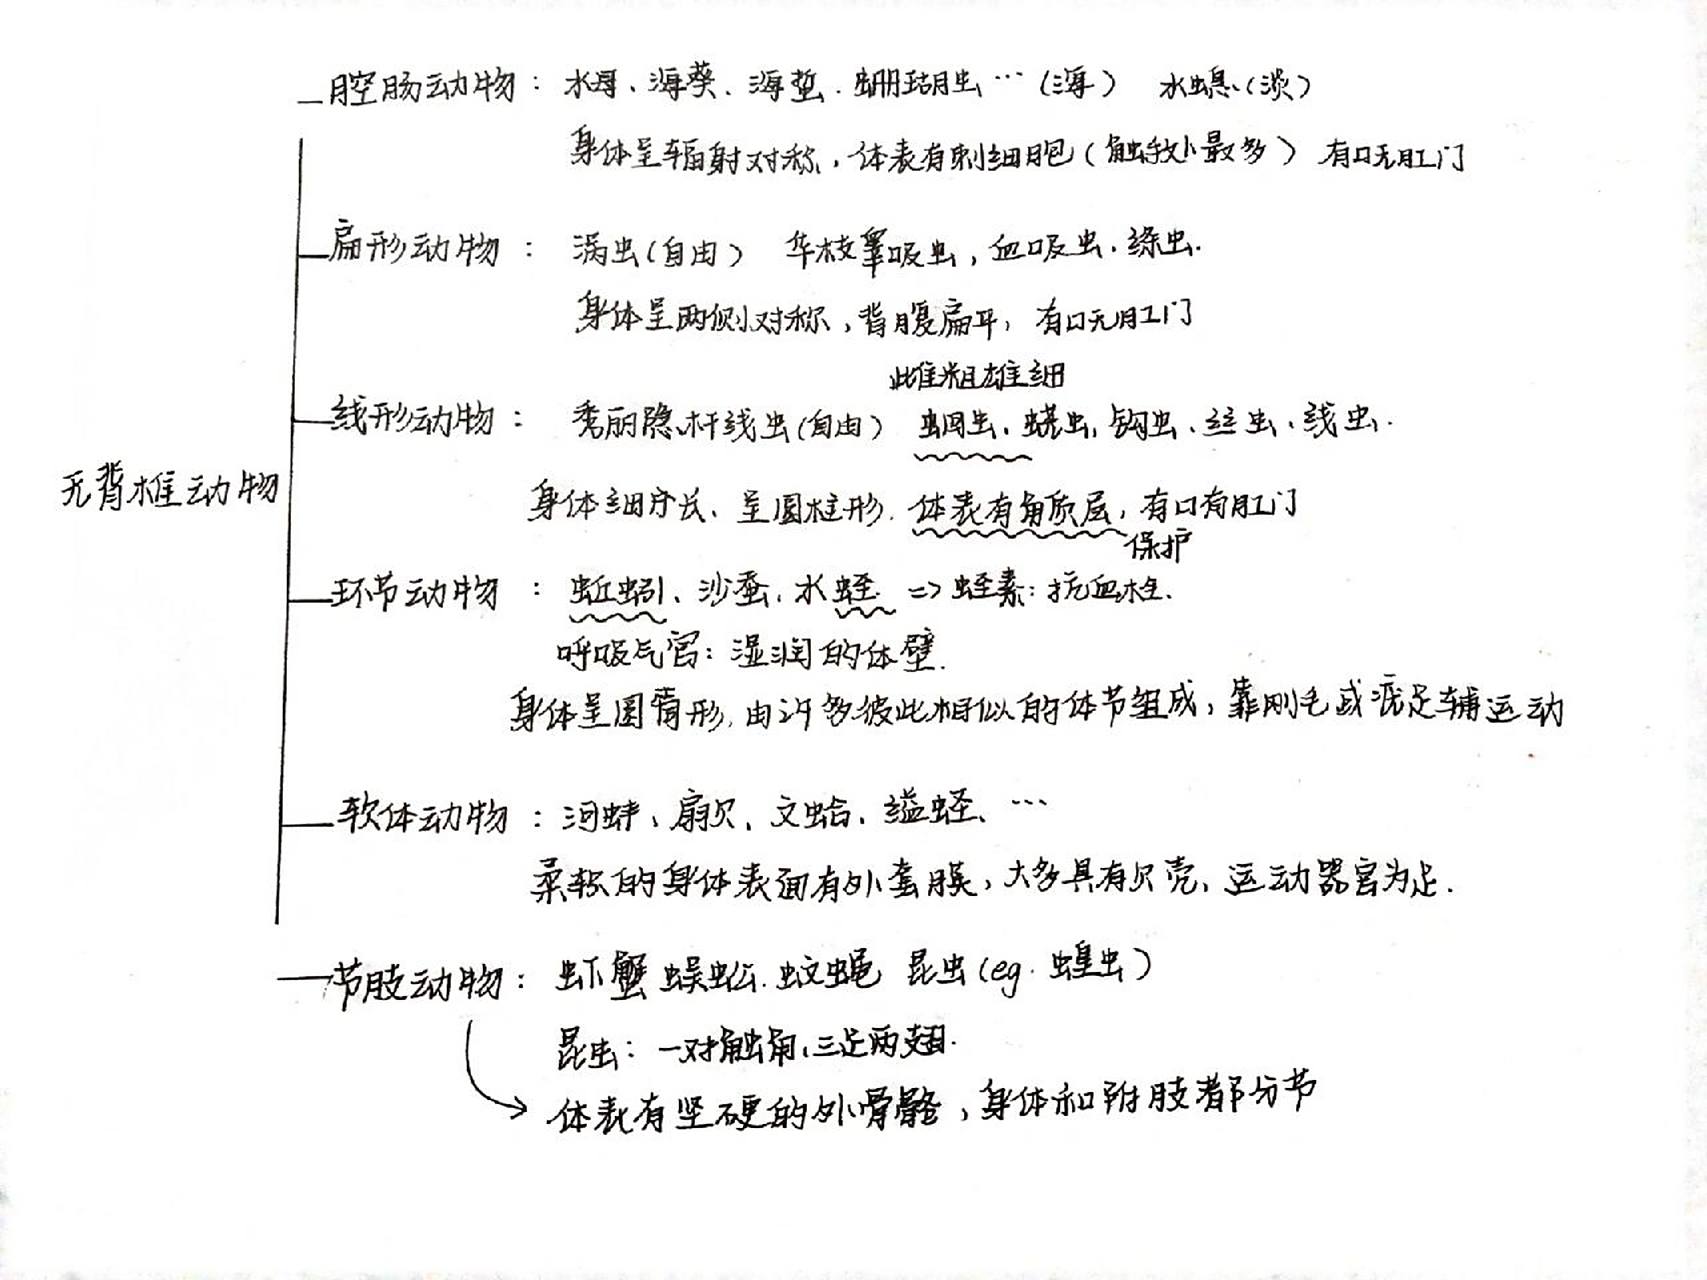 腔肠动物：水母、海葵、海蜇、珊瑚虫…（海） 水螅（淡）
身体呈辐射对称，体表有刺细胞（触手处最多） 有口无肛门
扁形动物：涡虫（自由） 华枝睾吸虫，血吸虫、绦虫.
身体呈两侧对称，背腹扁平，有口无肛门
雌粗雄细
线形动物：秀丽隐杆线虫（自由） 蛔虫、蛲虫，钩虫、丝虫、线虫.
无背椎动物
身体细长、呈圆柱形. 体表有角质层，有口有肛门
保护
环节动物：蚯蚓、沙蚕、水蛭 => 蛭素：抗血栓.
呼吸气官：湿润的体壁.
身体呈圆筒形，由许多彼此相似的体节组成，靠刚毛或疣足辅运动
软体动物：河蚌、扇贝、文蛤、缢蛏、…
柔软的身体表面有外套膜，大多具有贝壳，运动器官为足.
节肢动物：虾 蟹 蜈蚣. 蚊蝇 昆虫（eg. 蝗虫）
昆虫：一对触角、三足两翅.
体表有坚硬的外骨骼，身体和附肢都分节